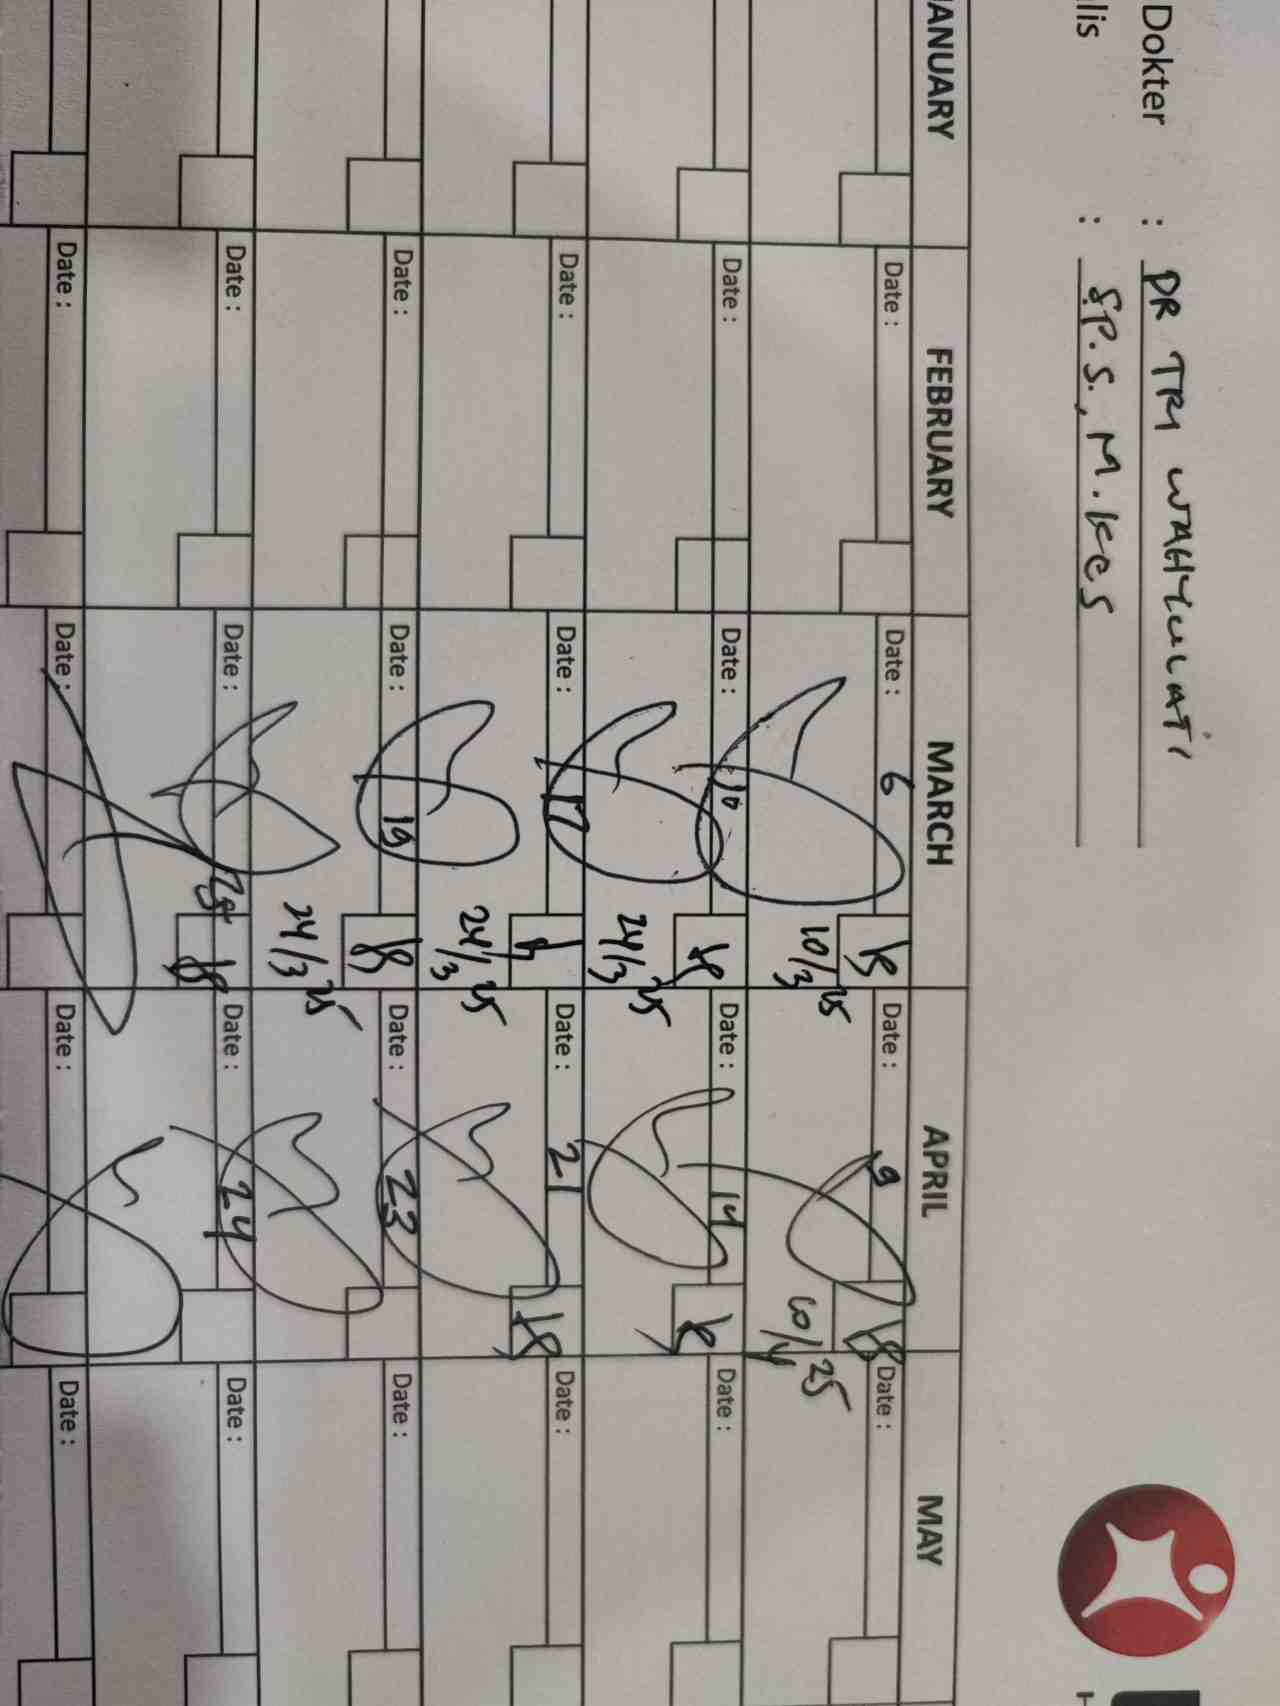 Dokter : DR TRI WAHYULIATI
lis : SP.S., M.Kes
ANUARY FEBRUARY MARCH APRIL MAY
Date : Date : 6 Date : 9 Date :
10/3 25 10/4 25
Date : Date : 10 Date : 14 Date :
24/3 25
Date : Date : 17 Date : 21 Date :
24/3 25
Date : Date : 19 Date : 23 Date :
24/3 25
Date : Date : Date : 24 Date :
Date : Date : Date : Date :